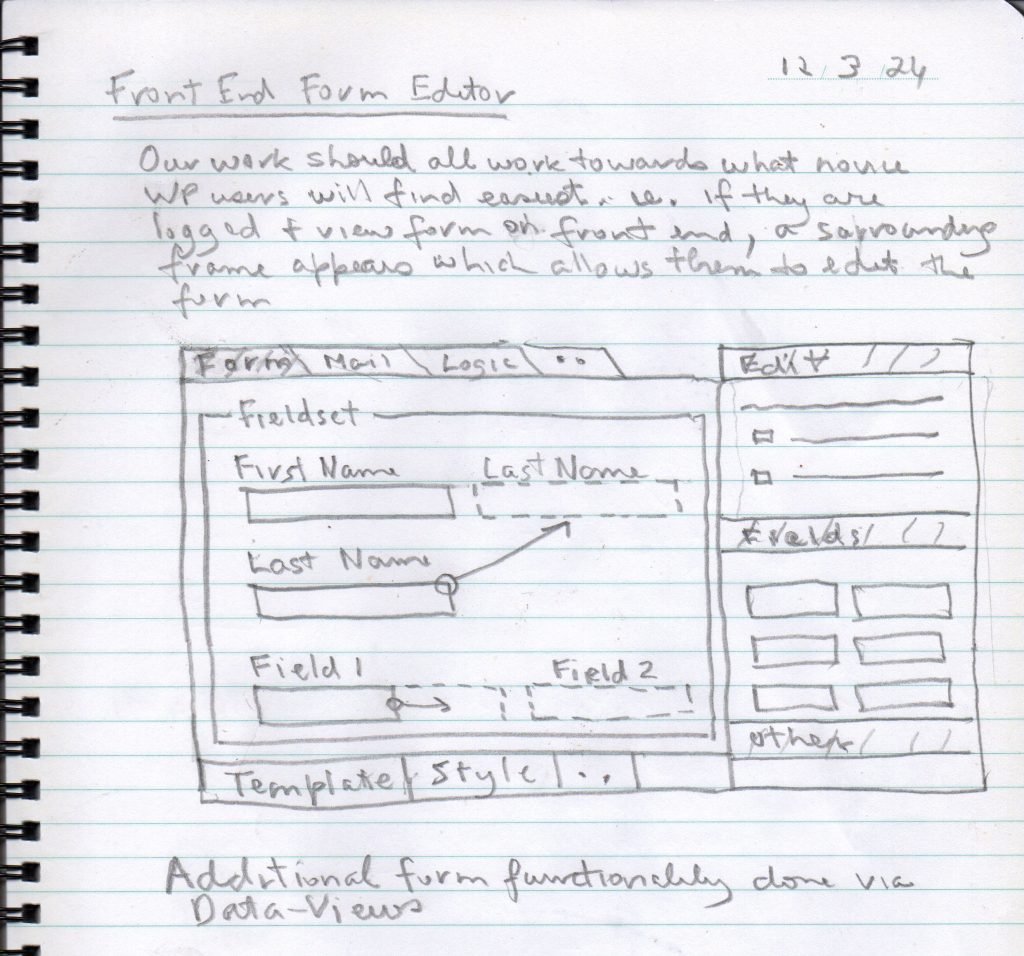 12 3 24
Front End Form Editor
Our work should all work towards what novice
WP users will find easiest. ie. if they are
logged + view form on front end, a sorrounding
frame appears which allows them to edit the
form
Form Mail Logic ..
Edit
Fieldset
First Name Last Name
Fields
Last Name
Field 1 Field 2
other
Template Style ..
Additional form functionality done via
Data-Views